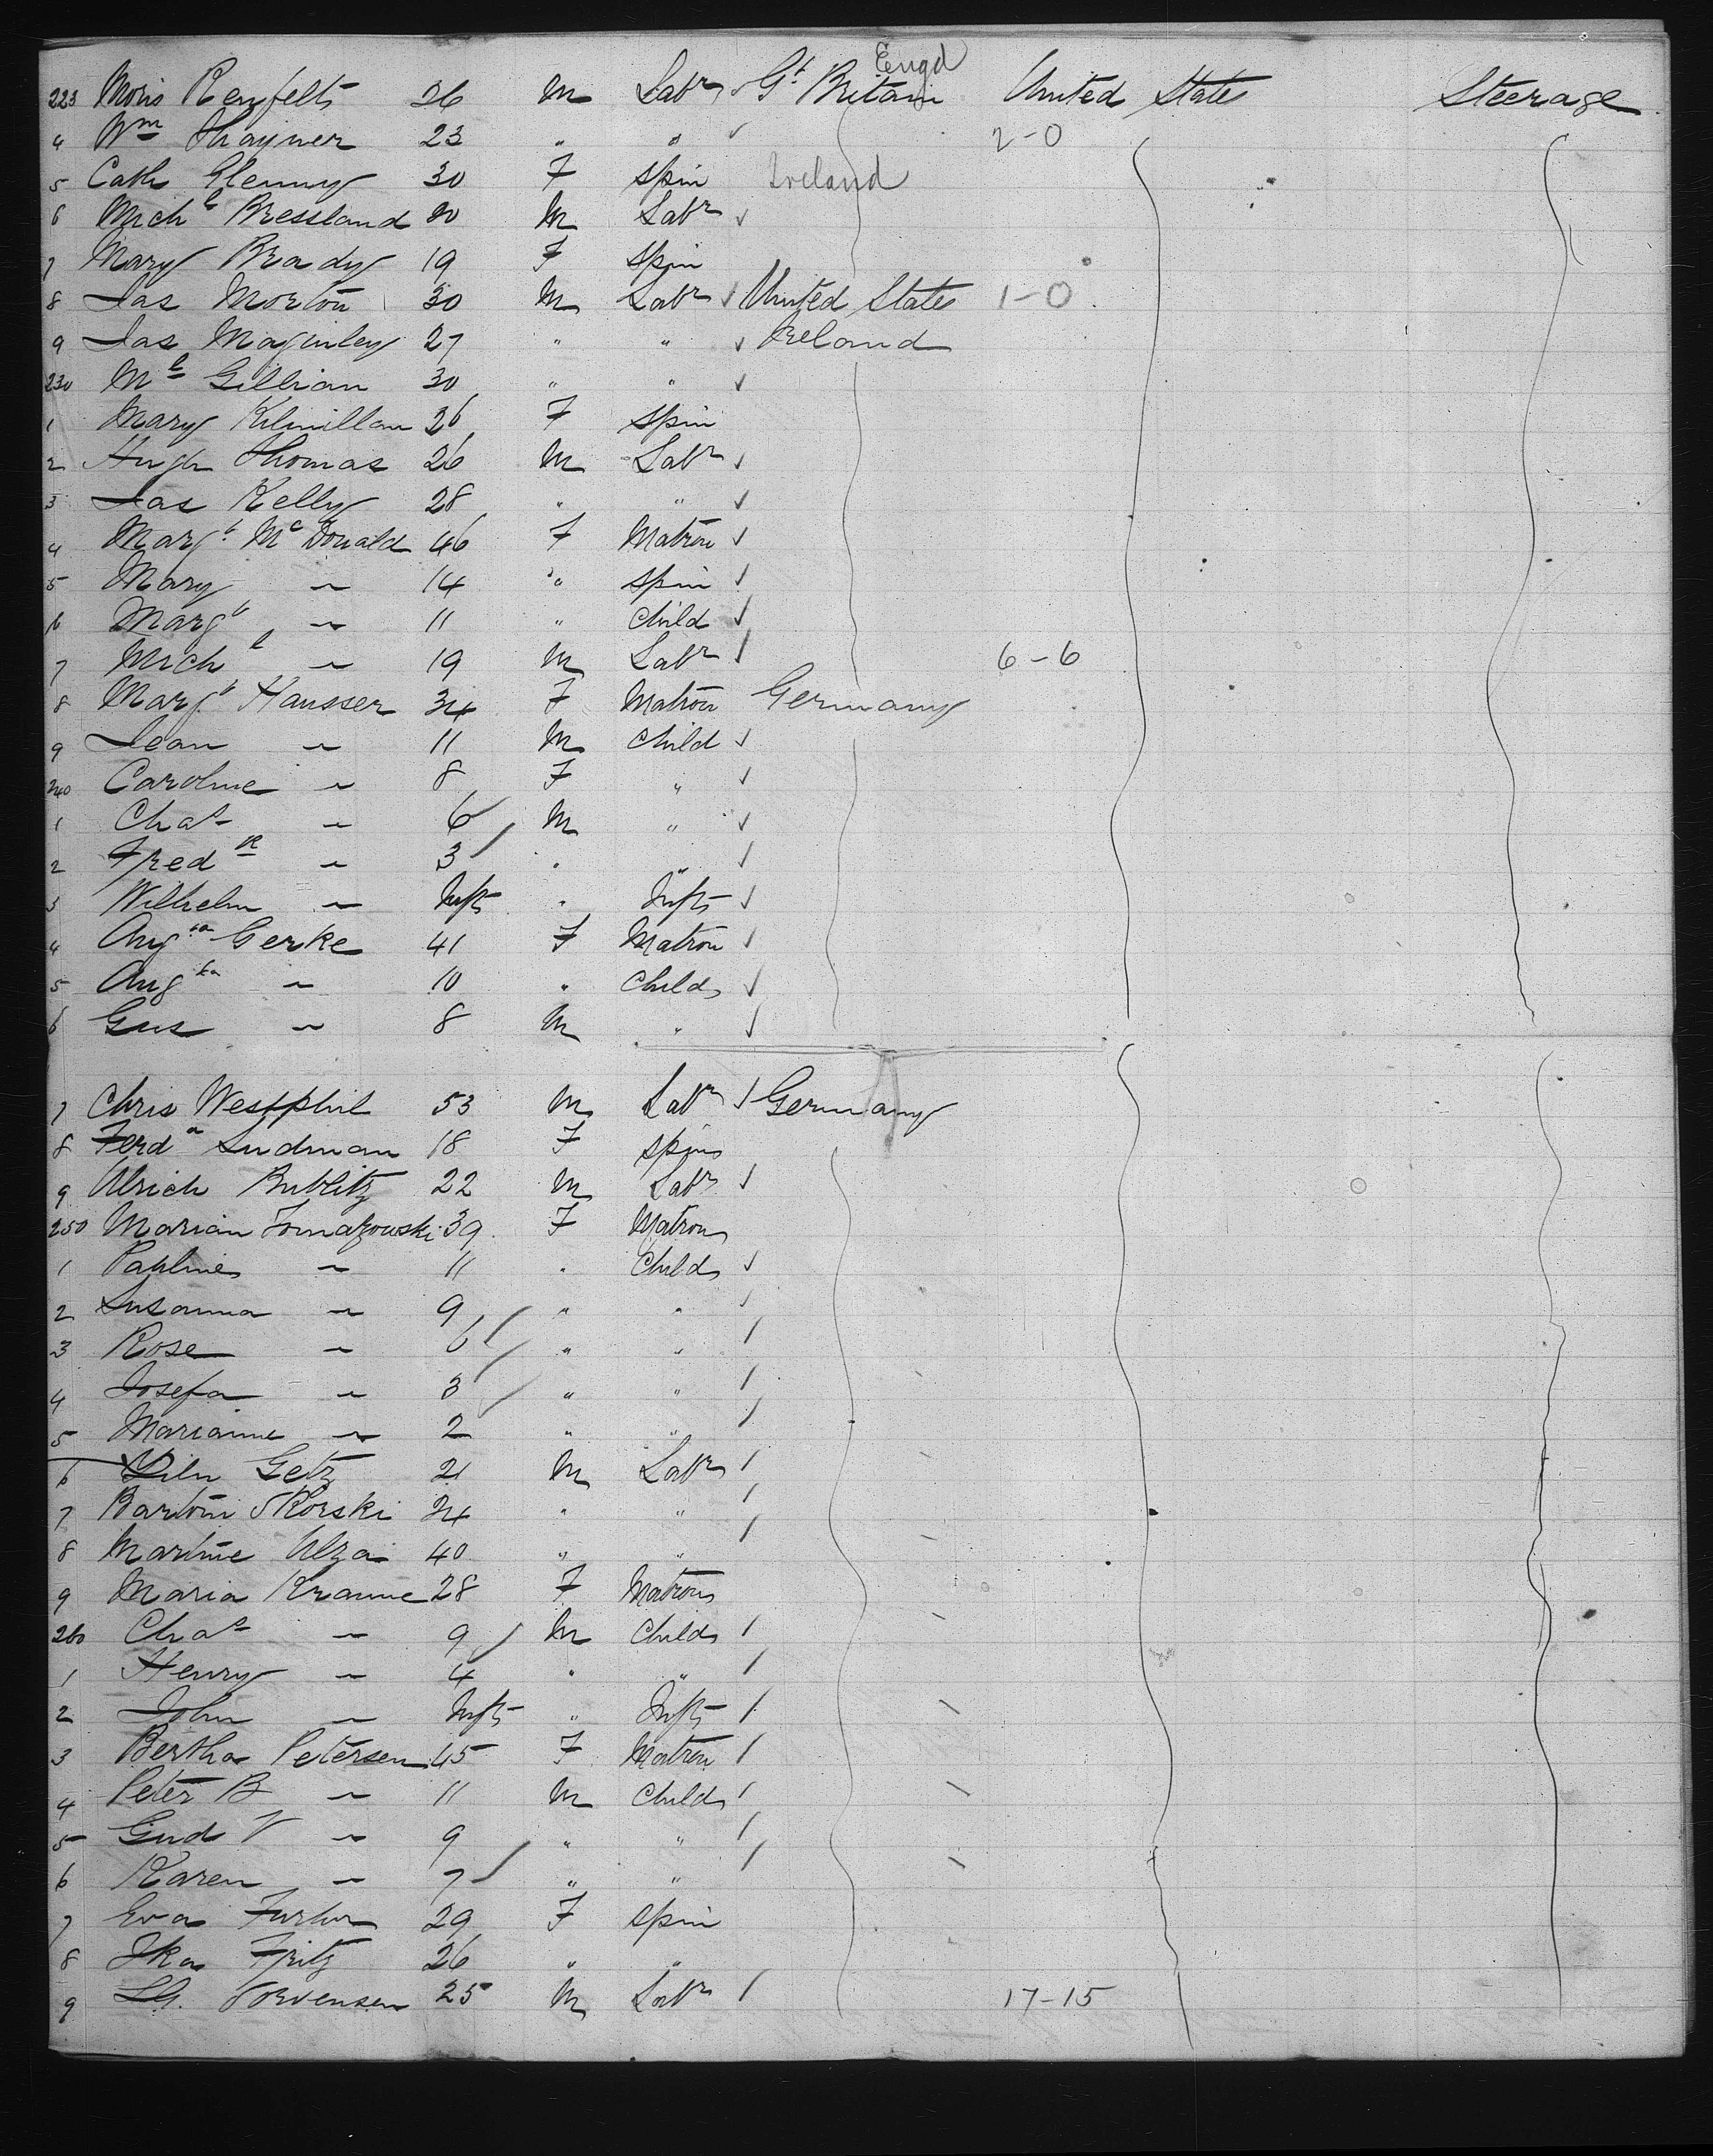 Engd
223 Moris Renfelt 26 M Labr Gt Britain United State Steerage
4 Wm Thayner 23 " " 2-0
5 Cath Glenny 30 F Spin Ireland
6 Michl Bressland 20 M Labr
7 Mary Brady 19 F Spin
8 Jas Morton 30 M Labr United States 1-0
9 Jas Maginley 27 " " Ireland
230 Ml Gillian 30 " "
1 Mary Kilmillan 26 F Spin
2 Hugh Thomas 26 M Labr
3 Jas Kelly 28 " "
4 Margt McDonald 46 F Matron
5 Mary " 14 " Spin
6 Margt " 11 " Child
7 Michl " 19 M Labr 6-6
8 Margt Hausser 34 F Matron Germany
9 Jean " 11 M Child
240 Caroline " 8 F "
1 Chas " 6 M "
2 Fredk " 3 " "
3 Wilhelm " Inft " Inft
4 Augta Gerke 41 F Matron
5 Augta " 10 " Child
6 Gus " 8 M "
7 Chris Westphil 53 M Labr Germany
8 Ferda Ludman 18 F Spin
9 Ulrich Bublitz 22 M Labr
250 Marian Tomazowski 39 F Matron
1 Pauline " 11 " Child
2 Susanna " 9 " "
3 Rose " 6 " "
4 Josefa " 3 " "
5 Marianne " 2 " "
6 Getz 21 M Labr
7 Bartom Skorski 24 " "
8 Martine Ulza 40 " "
9 Maria Kranne 28 F Matron
260 Chas " 9 M Child
1 Henry " 4 " "
2 John " Inft " Inft
3 Bertha Petersen 45 F Matron
4 Peter B " 11 M Child
5 Gud V " 9 " "
6 Karen " 7 " "
7 Eva 29 F Spin
8 Ika Fritz 26 " "
9 Sorvensen 25 M Labr 17-15